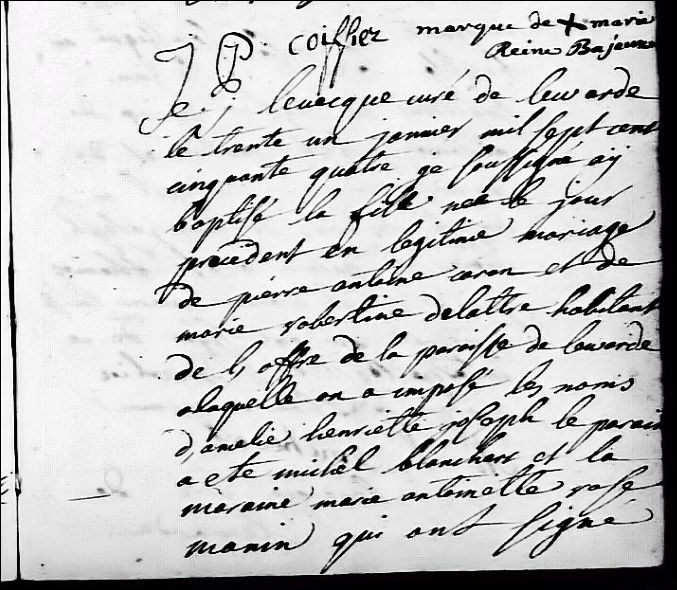 J P coiffiez marque de + marie
Reine Bajeux
J levecque curé de lewarde
le trente un janvier mil sept cent
cinquante quatre je soussigné aÿ
baptisé la fille née le jour
precedent en legitime mariage
de pierre antoine caron et de
marie robertine delattre habitant
de l, offre de la paroisse de lewarde
alaquelle on a imposé les noms
d, amelie henriette joseph le parain
a ete michel blanchart et la
maraine marie antoinette rose
manin qui ont signé